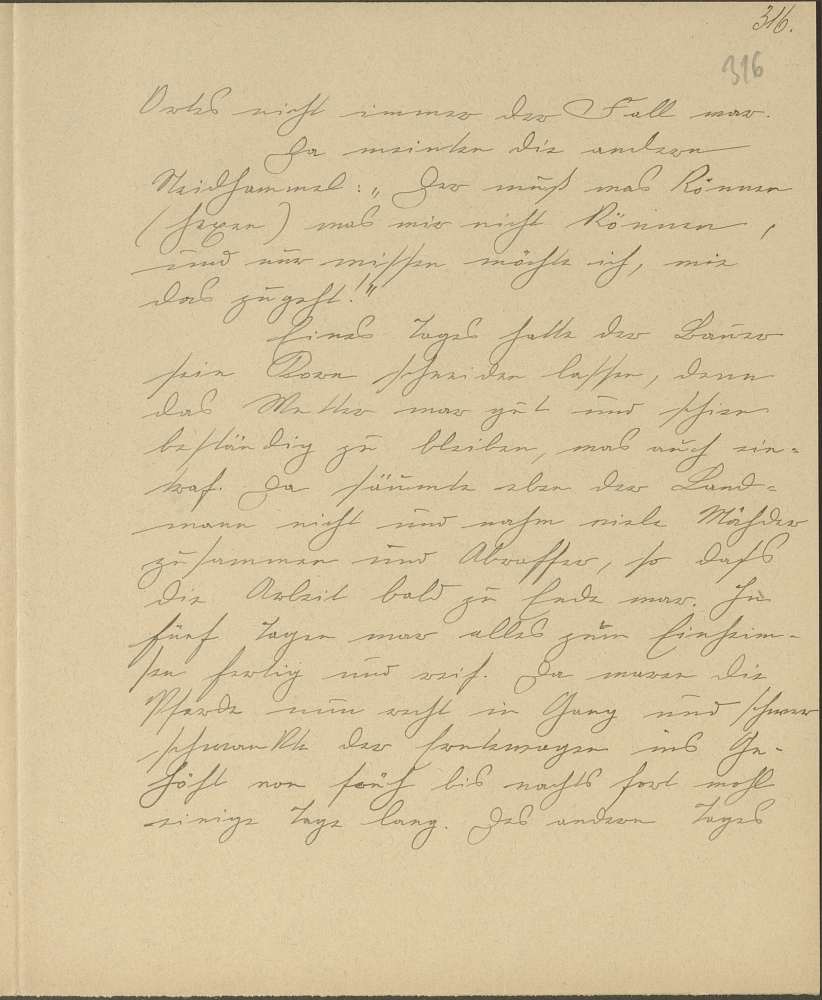 316.
316
Ortes nicht immer der Fall war.
Da meinten die andern
Neidhammel: „Der muß was können
(hexen) was wir nicht können,
und nur wissen möchte ich, wie
das zugeht!"
Eines Tages hatte der Bauer
sein Korn schneiden lassen, denn
das Wetter war gut und schien
beständig zu bleiben, was auch ein-
traf. Da säumte eben der Land-
mann nicht und nahm viele Mähder
zusammen und Abraffer, so daß
die Arbeit bald zu Ende war. In
fünf Tagen war alles zum Einheim-
sen fertig und reif. Da waren die
Pferde nun recht in Gang und schwer
schwankte der Erntewagen ins Ge-
höft von früh bis nachts fort wohl
einige Tage lang. Des andern Tages